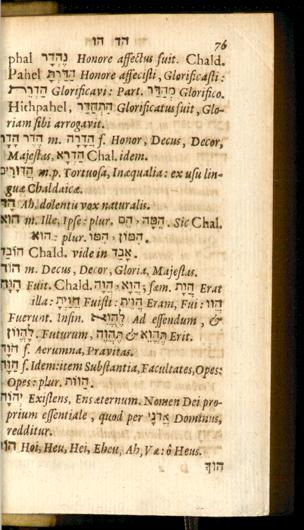 הד הו 76
phal נֶהְדָּר Honore affectus fuit. Chald.
Pahel הַדַּרְתָּ Honore affecisti, Glorificasti:
Glorificavi: Part. מְהַדַּר Glorifico.
Hithpahel, הִתְהַדַּר Glorificatus fuit, Glo-
riam sibi arrogavit.
הָדָר הֶדֶר m. הֲדָרָה f. Honor, Decus, Decor,
Majestas. הַדְרָא Chal. idem.
הֲדוּרִים m.p. Tortuosa, Inæqualia: ex usu lin-
guæ Chaldaicæ.
הָהּ Ah, dolentis vox naturalis.
הוּא m. Ille, Ipse: plur. הֵם, הֵמָּה. Sic Chal.
הוּא: plur. הִמּוֹ, הִמּוֹן.
הוֹבַד Chald. vide in אֲבַד.
הוֹד m. Decus, Decor, Gloria, Majestas.
הָוָה Fuit. Chald. הֲוָה, הֲוָא; fœm. הֲוָת Erat
illa: הֲוַיְתָ Fuisti: הֲוֵית Eram, Fui: הֲווֹ
Fuerunt. Infin. לֶהֱוֵא Ad essendum, &
לֶהֱוֹן. Futurum, תֶּהֱוֵה & תֶּהֱוֵא Erit.
הֹוָה f. Aerumna, Pravitas.
הַוָּה f. Idem: item Substantia, Facultates, Opes:
Opes: plur. הַוּוֹת.
יְהוָה Existens, Ens æternum. Nomen Dei pro-
prium essentiale, quod per אֲדֹנָי Dominus,
redditur.
הוֹי Hoi, Heu, Hei, Eheu, Ah, Væ: ô Heus.
הוֹךְ